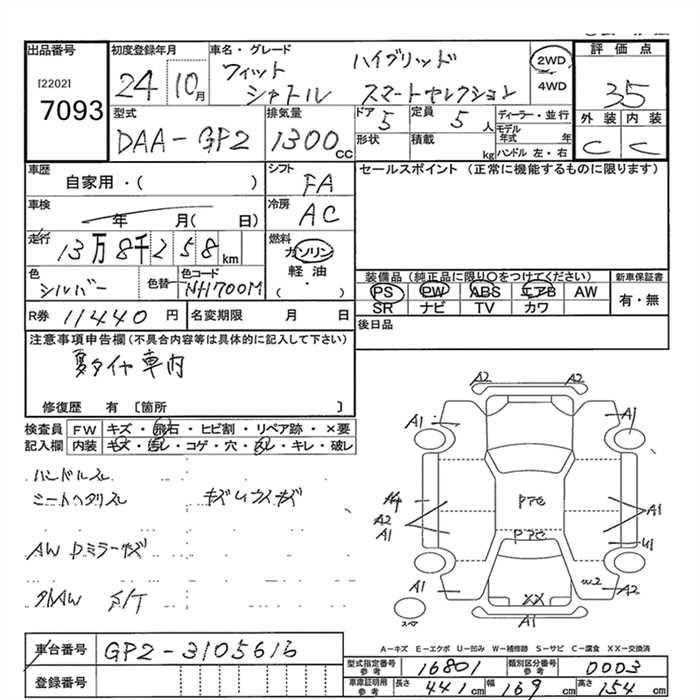 出品番号
[2202]
7093
初度登録年月
24 10月
車名・グレード
フィット ハイブリッド
シャトル スマートセレクション
2WD
4WD
評価点
3.5
外装 内装
C C
型式
DAA-GP2
排気量
1300 cc
ドア
5
形状
定員
5人
積載
kg
ディーラー・並行
モデル年式 年
ハンドル 左・右
車歴
自家用・( )
シフト
FA
車検
年 月( 日)
冷房
AC
走行
13万8千258 km
燃料
ガソリン
軽油・
( )
色
シルバー
色替
色コード
NH700M
R券 11440 円
名変期限 月 日
セールスポイント (正常に機能するものに限ります)
装備品 (純正品に限り○をつけてください)
PS PW ABS エアB AW
SR ナビ TV カワ
新車保証書
有・無
後日品
注意事項申告欄 (不具合内容等は具体的に記入して下さい)
夏タイヤ車内
修復歴 有 〔箇所 〕
検査員 FW キズ・飛石・ヒビ割・リペア跡・×要
記入欄 内装 キズ・汚レ・コゲ・穴・欠レ・キレ・破レ
ハンドルスレ
シートヘタリスレ
AW Dミラーキズ
A2 A2
A1 A1
A4
A2
A1
PアとC
A1
U1
W2
A1 A2
XX
A1
A-キズ E-エクボ U-凹み W-補修跡 S-サビ C-腐食 XX-交換済
車台番号 GP2-3105616
登録番号
型式指定番号 参考 16801
類別区分番号 参考 0003
車庫証明用 参考 長さ 441 cm 幅 169 cm 高さ 154 cm